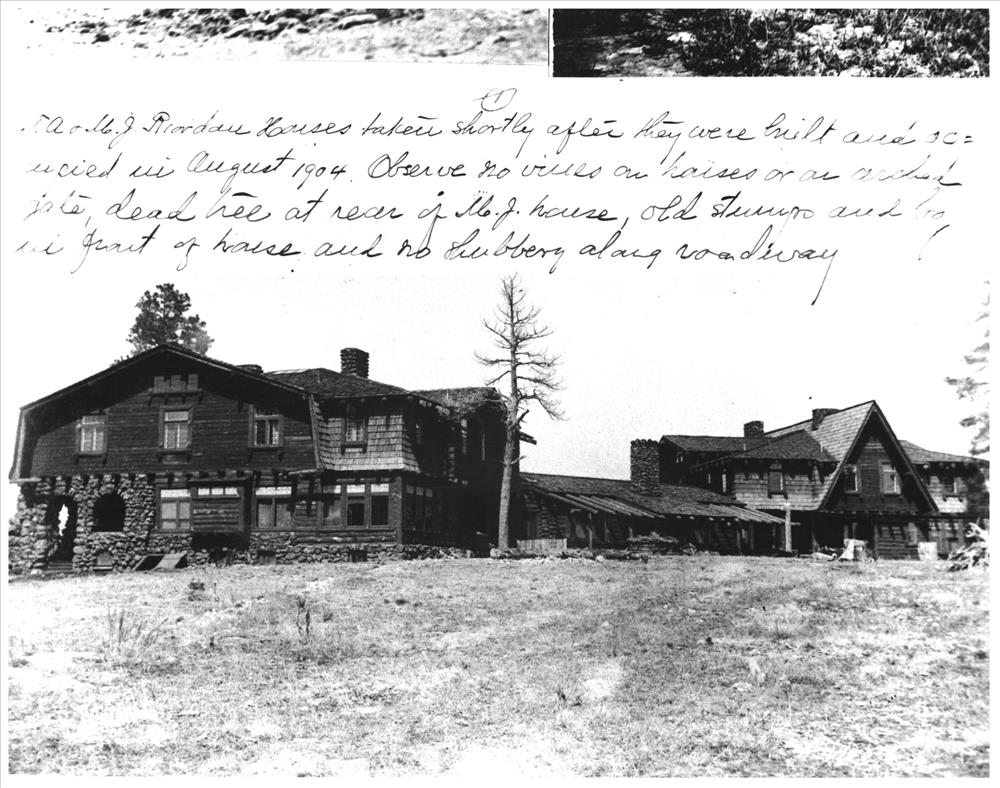 1
T.A. & M.J. Riordan Houses taken shortly after they were built and oc=
upied in August 1904. Observe no vines on houses or on arched
gate, dead tree at rear of M.J. house, old stumps and
in front of house and no shubbery along roadway